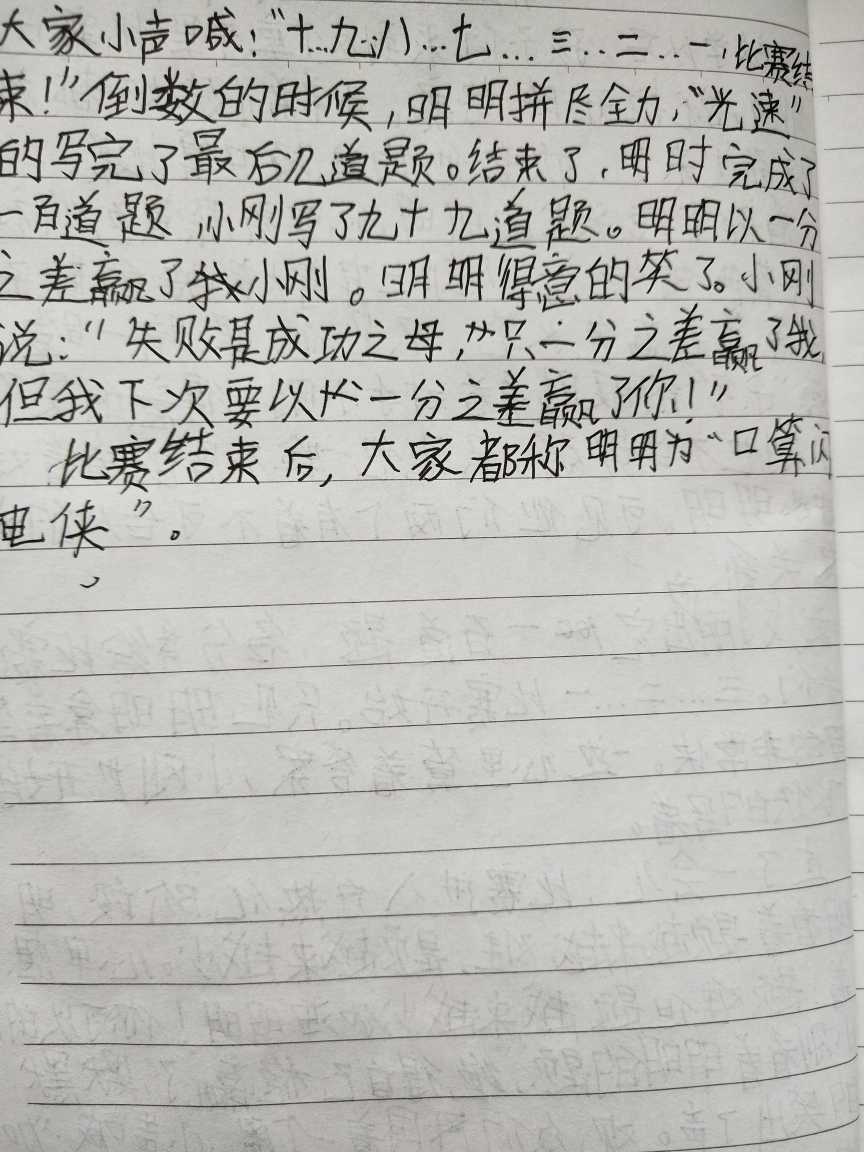 大家小声喊:“十…九…八…七…三…二…一,比赛结
束!”倒数的时候,明明拼尽全力,“光速”
的写完了最后几道题。结束了,明时完成了
一百道题,小刚写了九十九道题。明明以一分
之差赢了小刚。明明得意的笑了。小刚
说:“失败是成功之母,”只一分之差赢了我,
但我下次要以一分之差赢了你!”
比赛结束后,大家都称明明为“口算闪
电侠”。